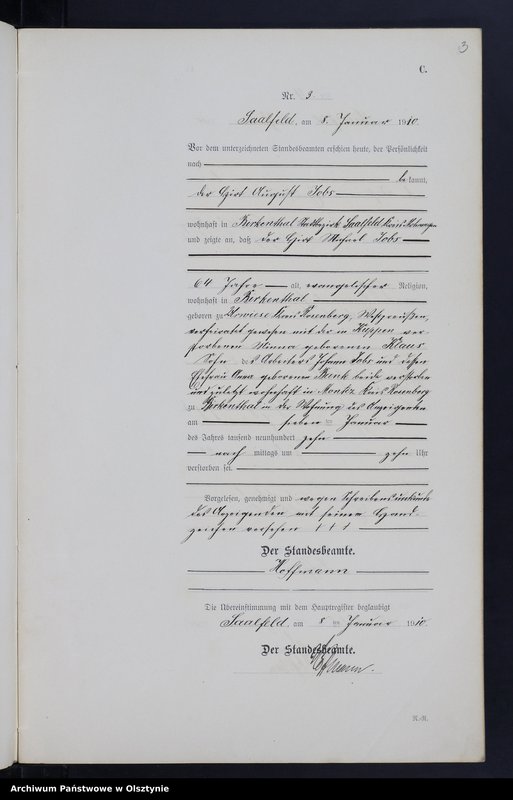 3
C.
Nr. 3.
Saalfeld, am 8. Januar 1910
Vor dem unterzeichneten Standesbeamten erschien heute, der Persönlichkeit
nach
bekannt,
der Hirt August Jobs
wohnhaft in Berkenthal Saalfeld Kreis Mohrungen
und zeigte an, daß der Hirt Michael Jobs
64 Jahre alt, evangelischer Religion,
wohnhaft in Berkenthal
geboren zu Kreis Rosenberg, Westpreußen,
verheiratet gewesen mit der in Kuppen ver
storbenen Minna geborenen Klaus
Sohn des Arbeiters Johann Jobs und dessen
Ehefrau Anna geborenen beide verstorben
und zuletzt wohnhaft in Kreis Rosenberg
zu Berkenthal in der Wohnung des Anzeigenden
am sieben ten Januar
des Jahres tausend neunhundert zehn
nach mittags um zehn Uhr
verstorben sei.
Vorgelesen, genehmigt und wegen Schreibensunkunde
des Anzeigenden mit seinem Hand-
zeichen versehen † † †
Der Standesbeamte.
Hoffmann
Die Übereinstimmung mit dem Hauptregister beglaubigt
Saalfeld, am 8 ten Januar 1910.
Der Standesbeamte.
Hoffmann.
Archiwum Państwowe w Olsztynie